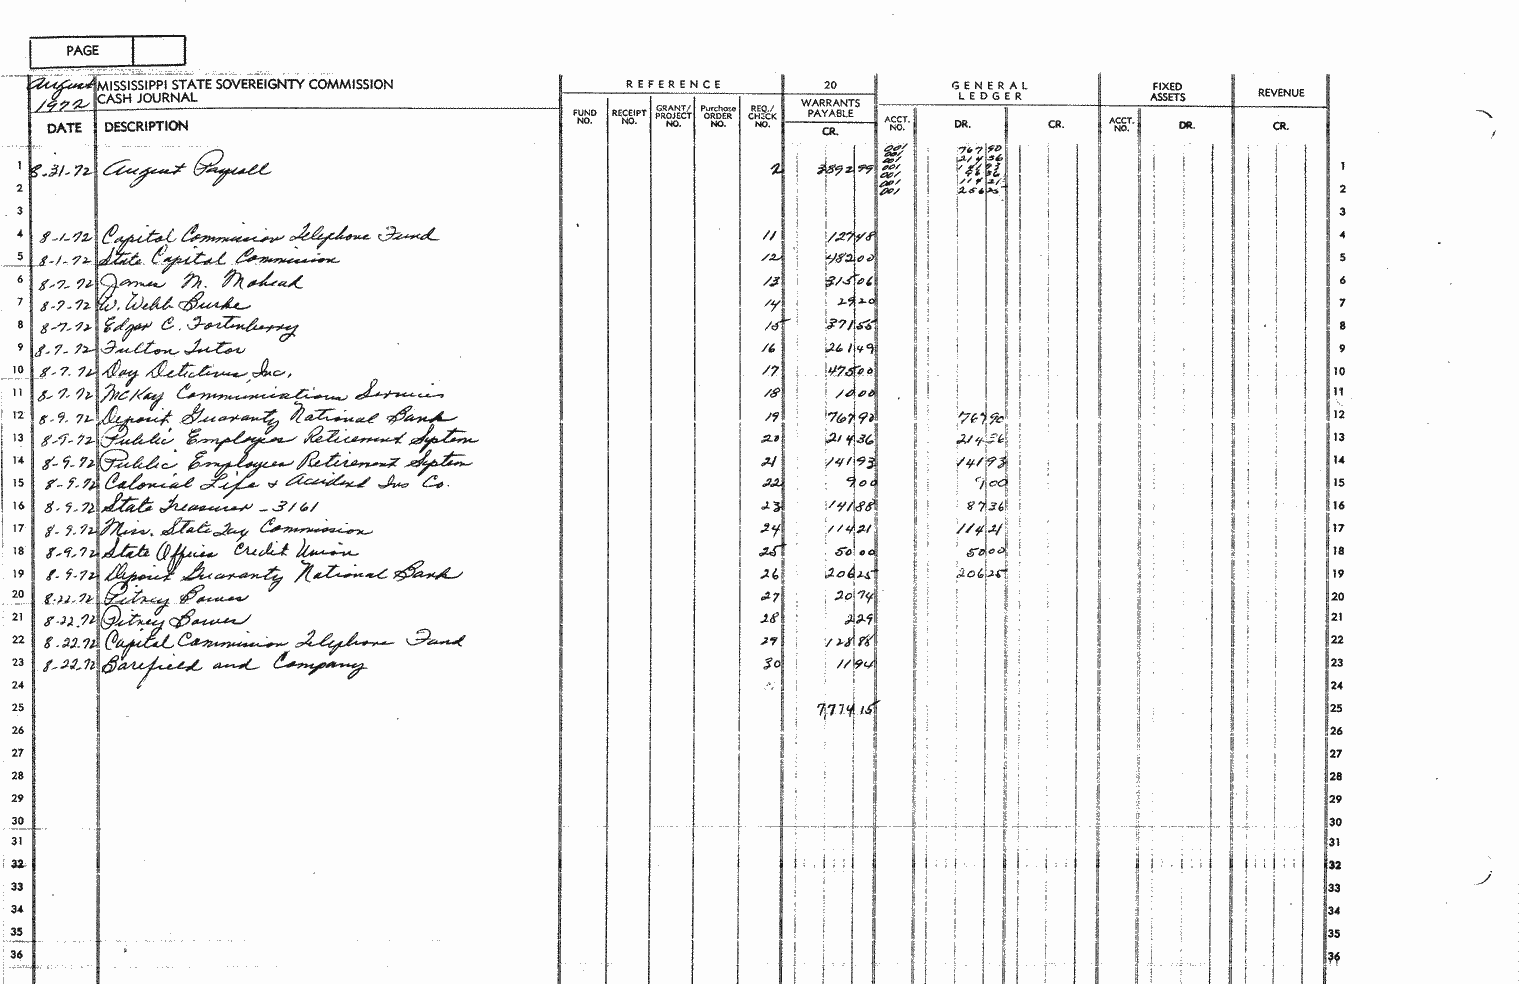 PAGE
August 1972 MISSISSIPPI STATE SOVEREIGNTY COMMISSION
CASH JOURNAL
REFERENCE 20 GENERAL LEDGER FIXED ASSETS REVENUE
DATE DESCRIPTION FUND NO. RECEIPT NO. GRANT/PROJECT NO. Purchase ORDER NO. REQ./CHECK NO. WARRANTS PAYABLE CR. ACCT. NO. DR. CR. ACCT. NO. DR. CR.
001 767 90
001 214 36
1 8-31-72 August Payroll 2 3892 99 001 1
001
001 114 21
2 001 2
3 3
4 8-1-72 Capitol Commission Telephone Fund 11 127 48 4
5 8-1-72 State Capitol Commission 12 482 00 5
6 8-7-72 James M. Mohead 13 315 06 6
7 8-7-72 W. Webb Burke 14 29 20 7
8 8-7-72 Edgar C. Fortenberry 15 371 55 8
9 8-7-72 Fulton Tutor 16 261 49 9
10 8-7-72 Day Detectives, Inc. 17 475 00 10
11 8-7-72 McKay Communications Services 18 10 00 11
12 8-9-72 Deposit Guaranty National Bank 19 767 90 767 90 12
13 8-9-72 Public Employees Retirement System 20 214 36 214 36 13
14 8-9-72 Public Employees Retirement System 21 141 93 141 93 14
15 8-9-72 Colonial Life & Accident Ins Co. 22 9 00 9 00 15
16 8-9-72 State Treasurer - 3161 23 141 88 87 36 16
17 8-9-72 Miss. State Tax Commission 24 114 21 114 21 17
18 8-9-72 State Offices Credit Union 25 50 00 50 00 18
19 8-9-72 Deposit Guaranty National Bank 26 206 25 206 25 19
20 8-22-72 Pitney Bowes 27 20 74 20
21 8-22-72 Pitney Bowes 28 2 29 21
22 8-22-72 Capitol Commission Telephone Fund 29 128 88 22
23 8-22-72 Barefield and Company 30 11 94 23
24 24
25 7774 15 25
26 26
27 27
28 28
29 29
30 30
31 31
32 32
33 33
34 34
35 35
36 36